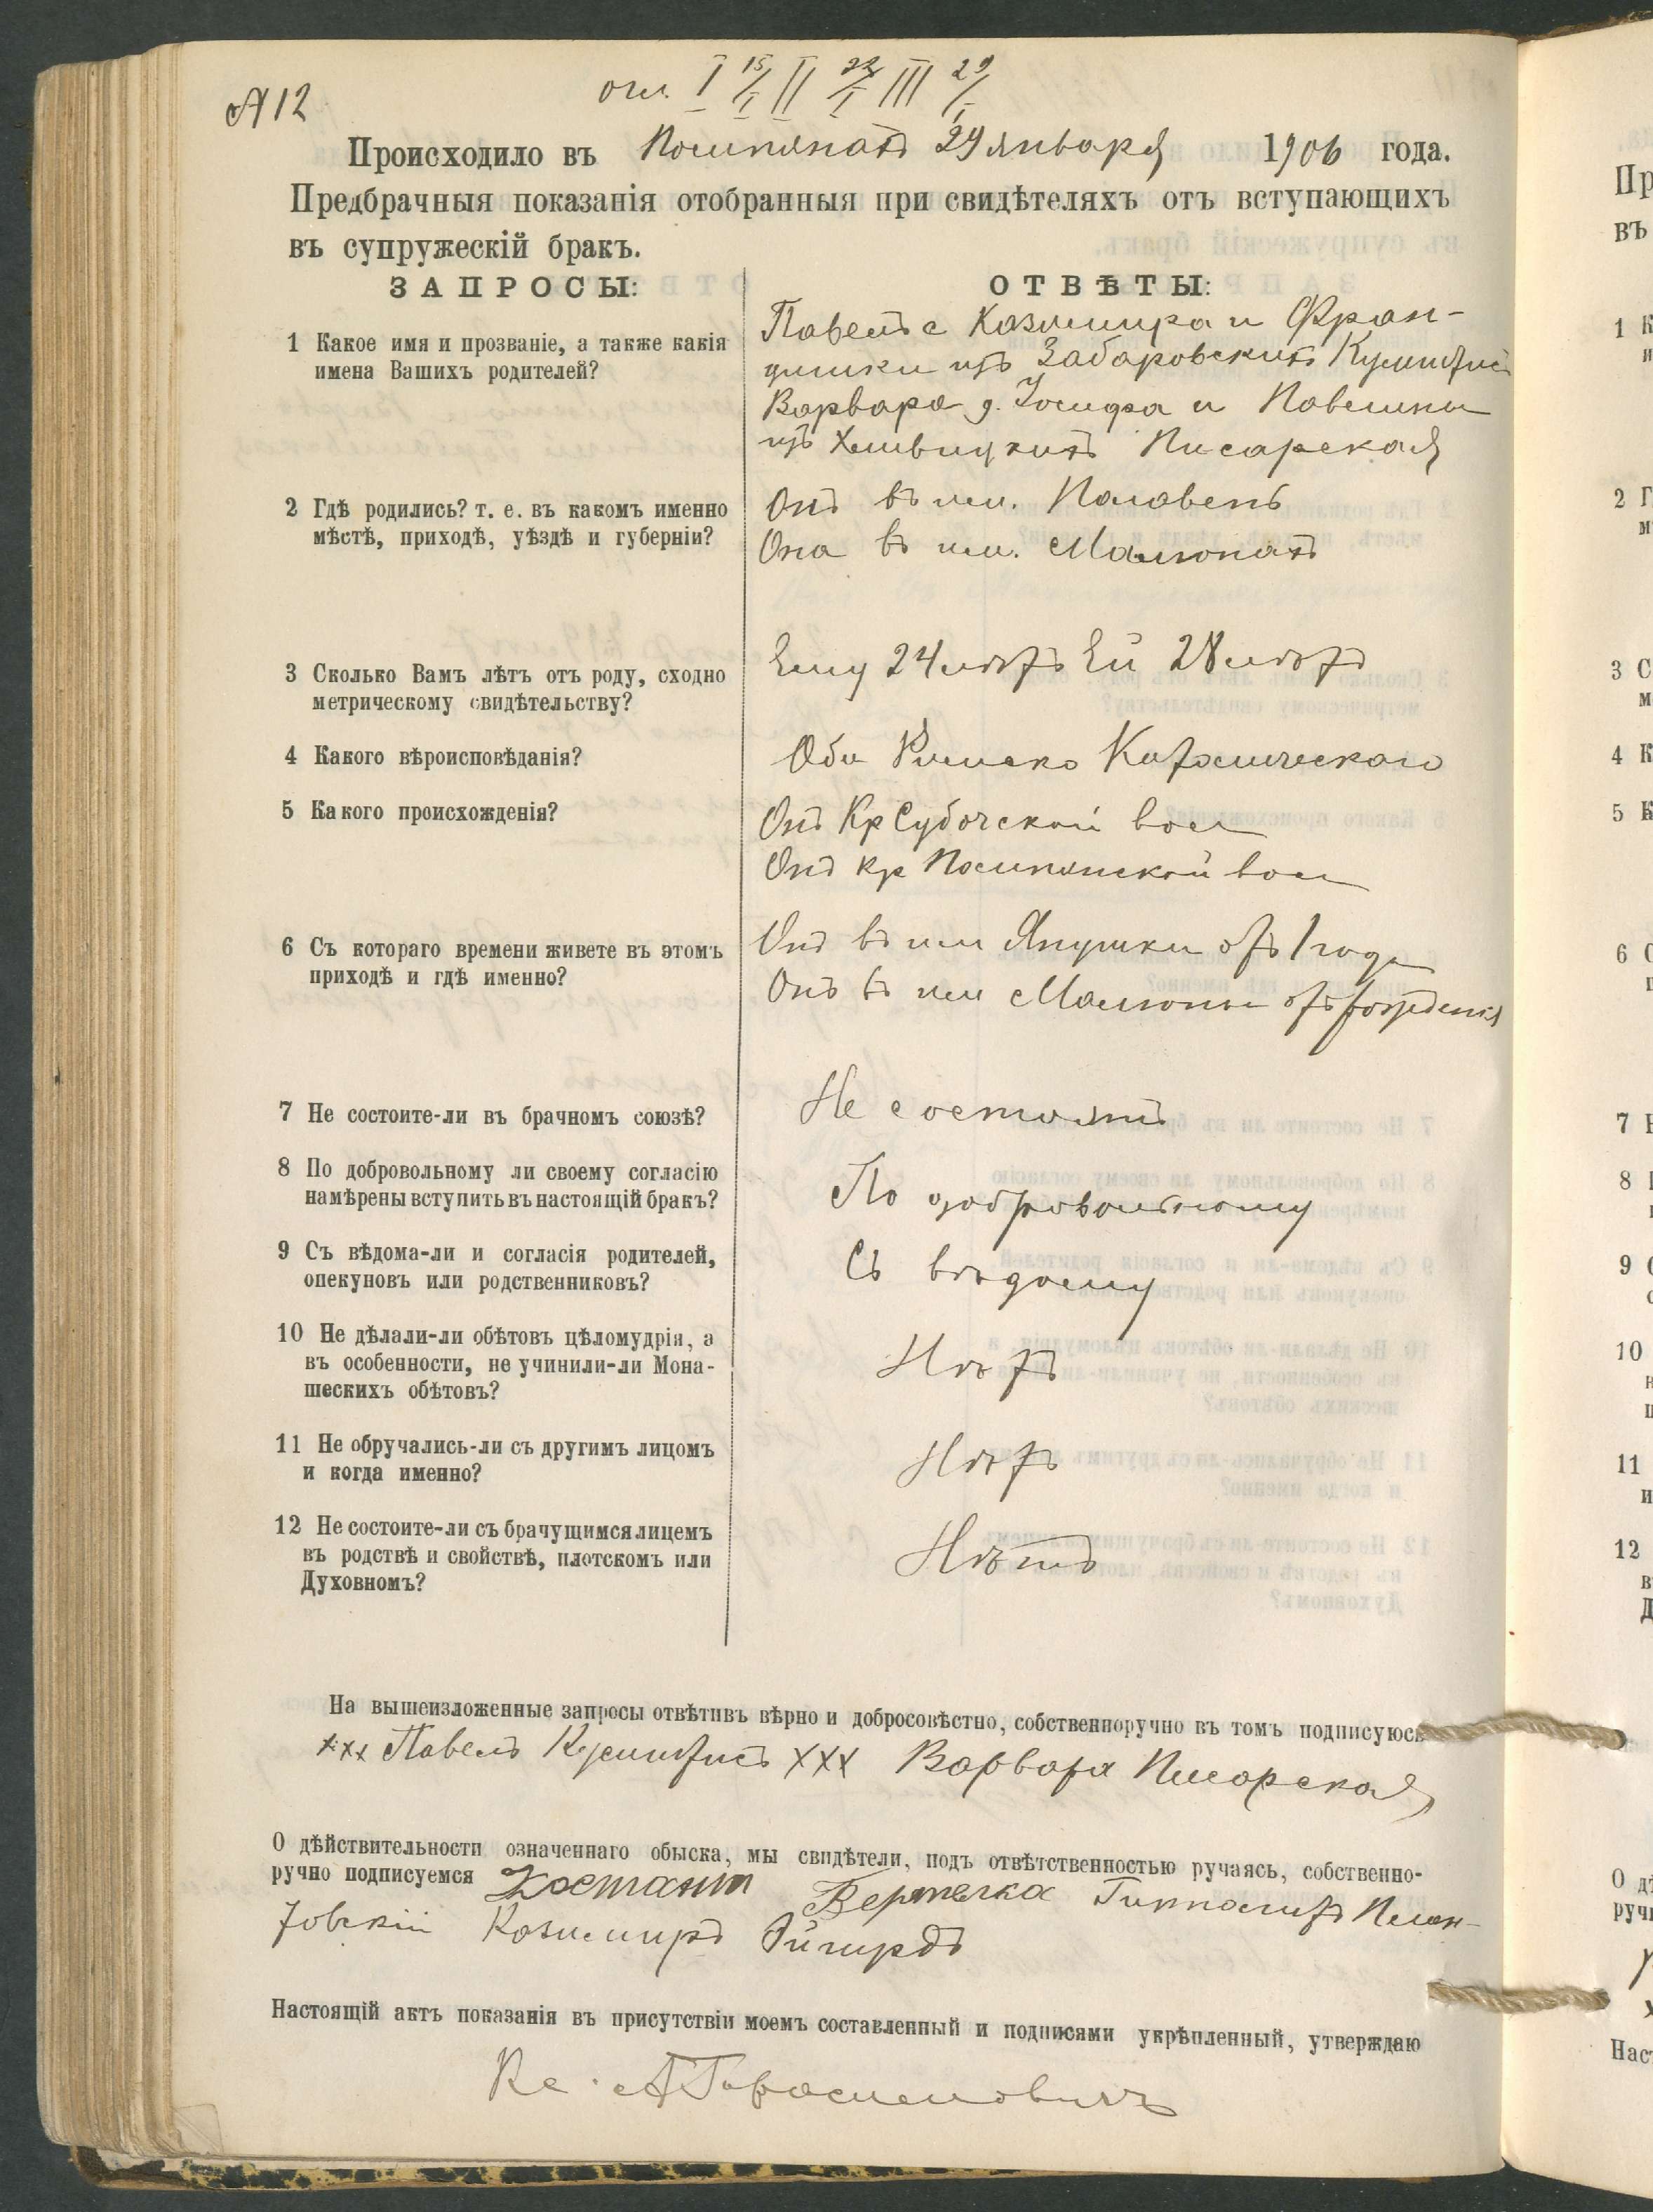 № 12
огл. I 15/I II 22/I III 29/I
Происходило въ Помпянахъ 29 января 1906 года.
Предбрачныя показанія отобранныя при свидѣтеляхъ отъ вступающихъ
въ супружескій бракъ.
ЗАПРОСЫ: ОТВѢТЫ:
1 Какое имя и прозваніе, а также какія
имена Вашихъ родителей?
Павелъ с Казимира и Фран-
цишки изъ Забаровскихъ
Варвара д. Іосифа и Павелины
изъ Писарская
2 Гдѣ родились? т. е. въ какомъ именно
мѣстѣ, приходѣ, уѣздѣ и губерніи?
Онъ въ им.
Она въ им. Малюпахъ
3 Сколько Вамъ лѣтъ отъ роду, сходно
метрическому свидѣтельству?
Ему 24 лѣтъ Ей 28 лѣтъ
4 Какого вѣроисповѣданія?
Оби Римско Католическаго
5 Какого происхожденія?
Онъ Кр Субочской вол
Онъ кр Помпянской вол
6 Съ котораго времени живете въ этомъ
приходѣ и гдѣ именно?
Онъ въ им Янушки отъ 1 года
Онъ въ им Малюпы отъ рожденія
7 Не состоите-ли въ брачномъ союзѣ?
Не состоятъ
8 По добровольному ли своему согласію
намѣрены вступить въ настоящій бракъ?
По добровольному
9 Съ вѣдома-ли и согласія родителей,
опекуновъ или родственниковъ?
Съ вѣдому
10 Не дѣлали-ли обѣтовъ цѣломудрія, а
въ особенности, не учинили-ли Мона-
шескихъ обѣтовъ?
Нѣтъ
11 Не обручались-ли съ другимъ лицомъ
и когда именно?
Нѣтъ
12 Не состоите-ли съ брачущимся лицемъ
въ родствѣ и свойствѣ, плотскомъ или
Духовномъ?
Нѣтъ
На вышеизложенные запросы отвѣтивъ вѣрно и добросовѣстно, собственноручно въ томъ подписуюсь
xxx Павелъ xxx Варвара Писарская
О дѣйствительности означеннаго обыска, мы свидѣтели, подъ отвѣтственностью ручаясь, собственно-
ручно подписуемся Костант Вертелка
Казимиръ
Настоящій актъ показанія въ присутствіи моемъ составленный и подписями укрѣпленный, утверждаю
Кс. А